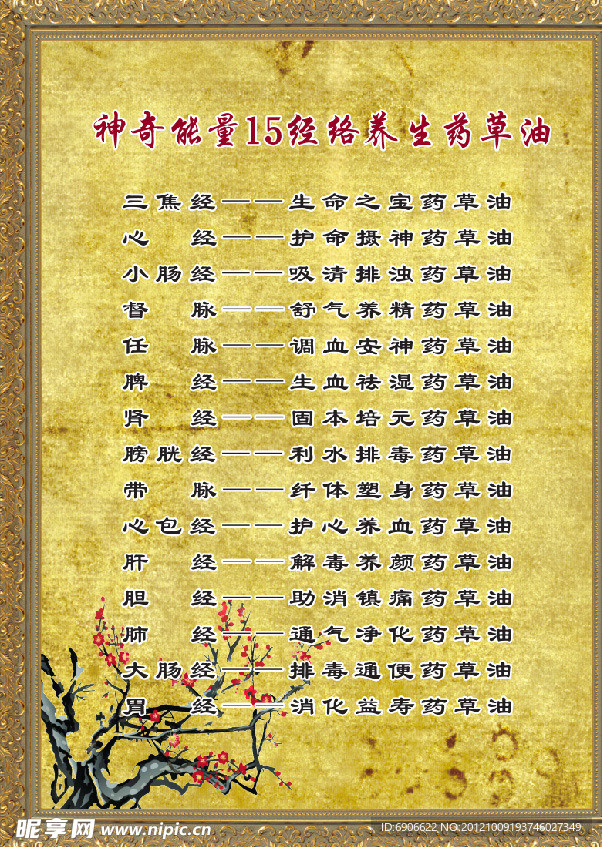 神奇能量15经络养生药草油
三焦经——生命之宝药草油
心 经——护命摄神药草油
小肠经——吸清排浊药草油
督 脉——舒气养精药草油
任 脉——调血安神药草油
脾 经——生血祛湿药草油
肾 经——固本培元药草油
膀胱经——利水排毒药草油
带 脉——纤体塑身药草油
心包经——护心养血药草油
肝 经——解毒养颜药草油
胆 经——助消镇痛药草油
肺 经——通气净化药草油
大肠经——排毒通便药草油
胃 经——消化益寿药草油
昵享网 www.nipic.cn
ID:6906622 NO:20121009193746027349